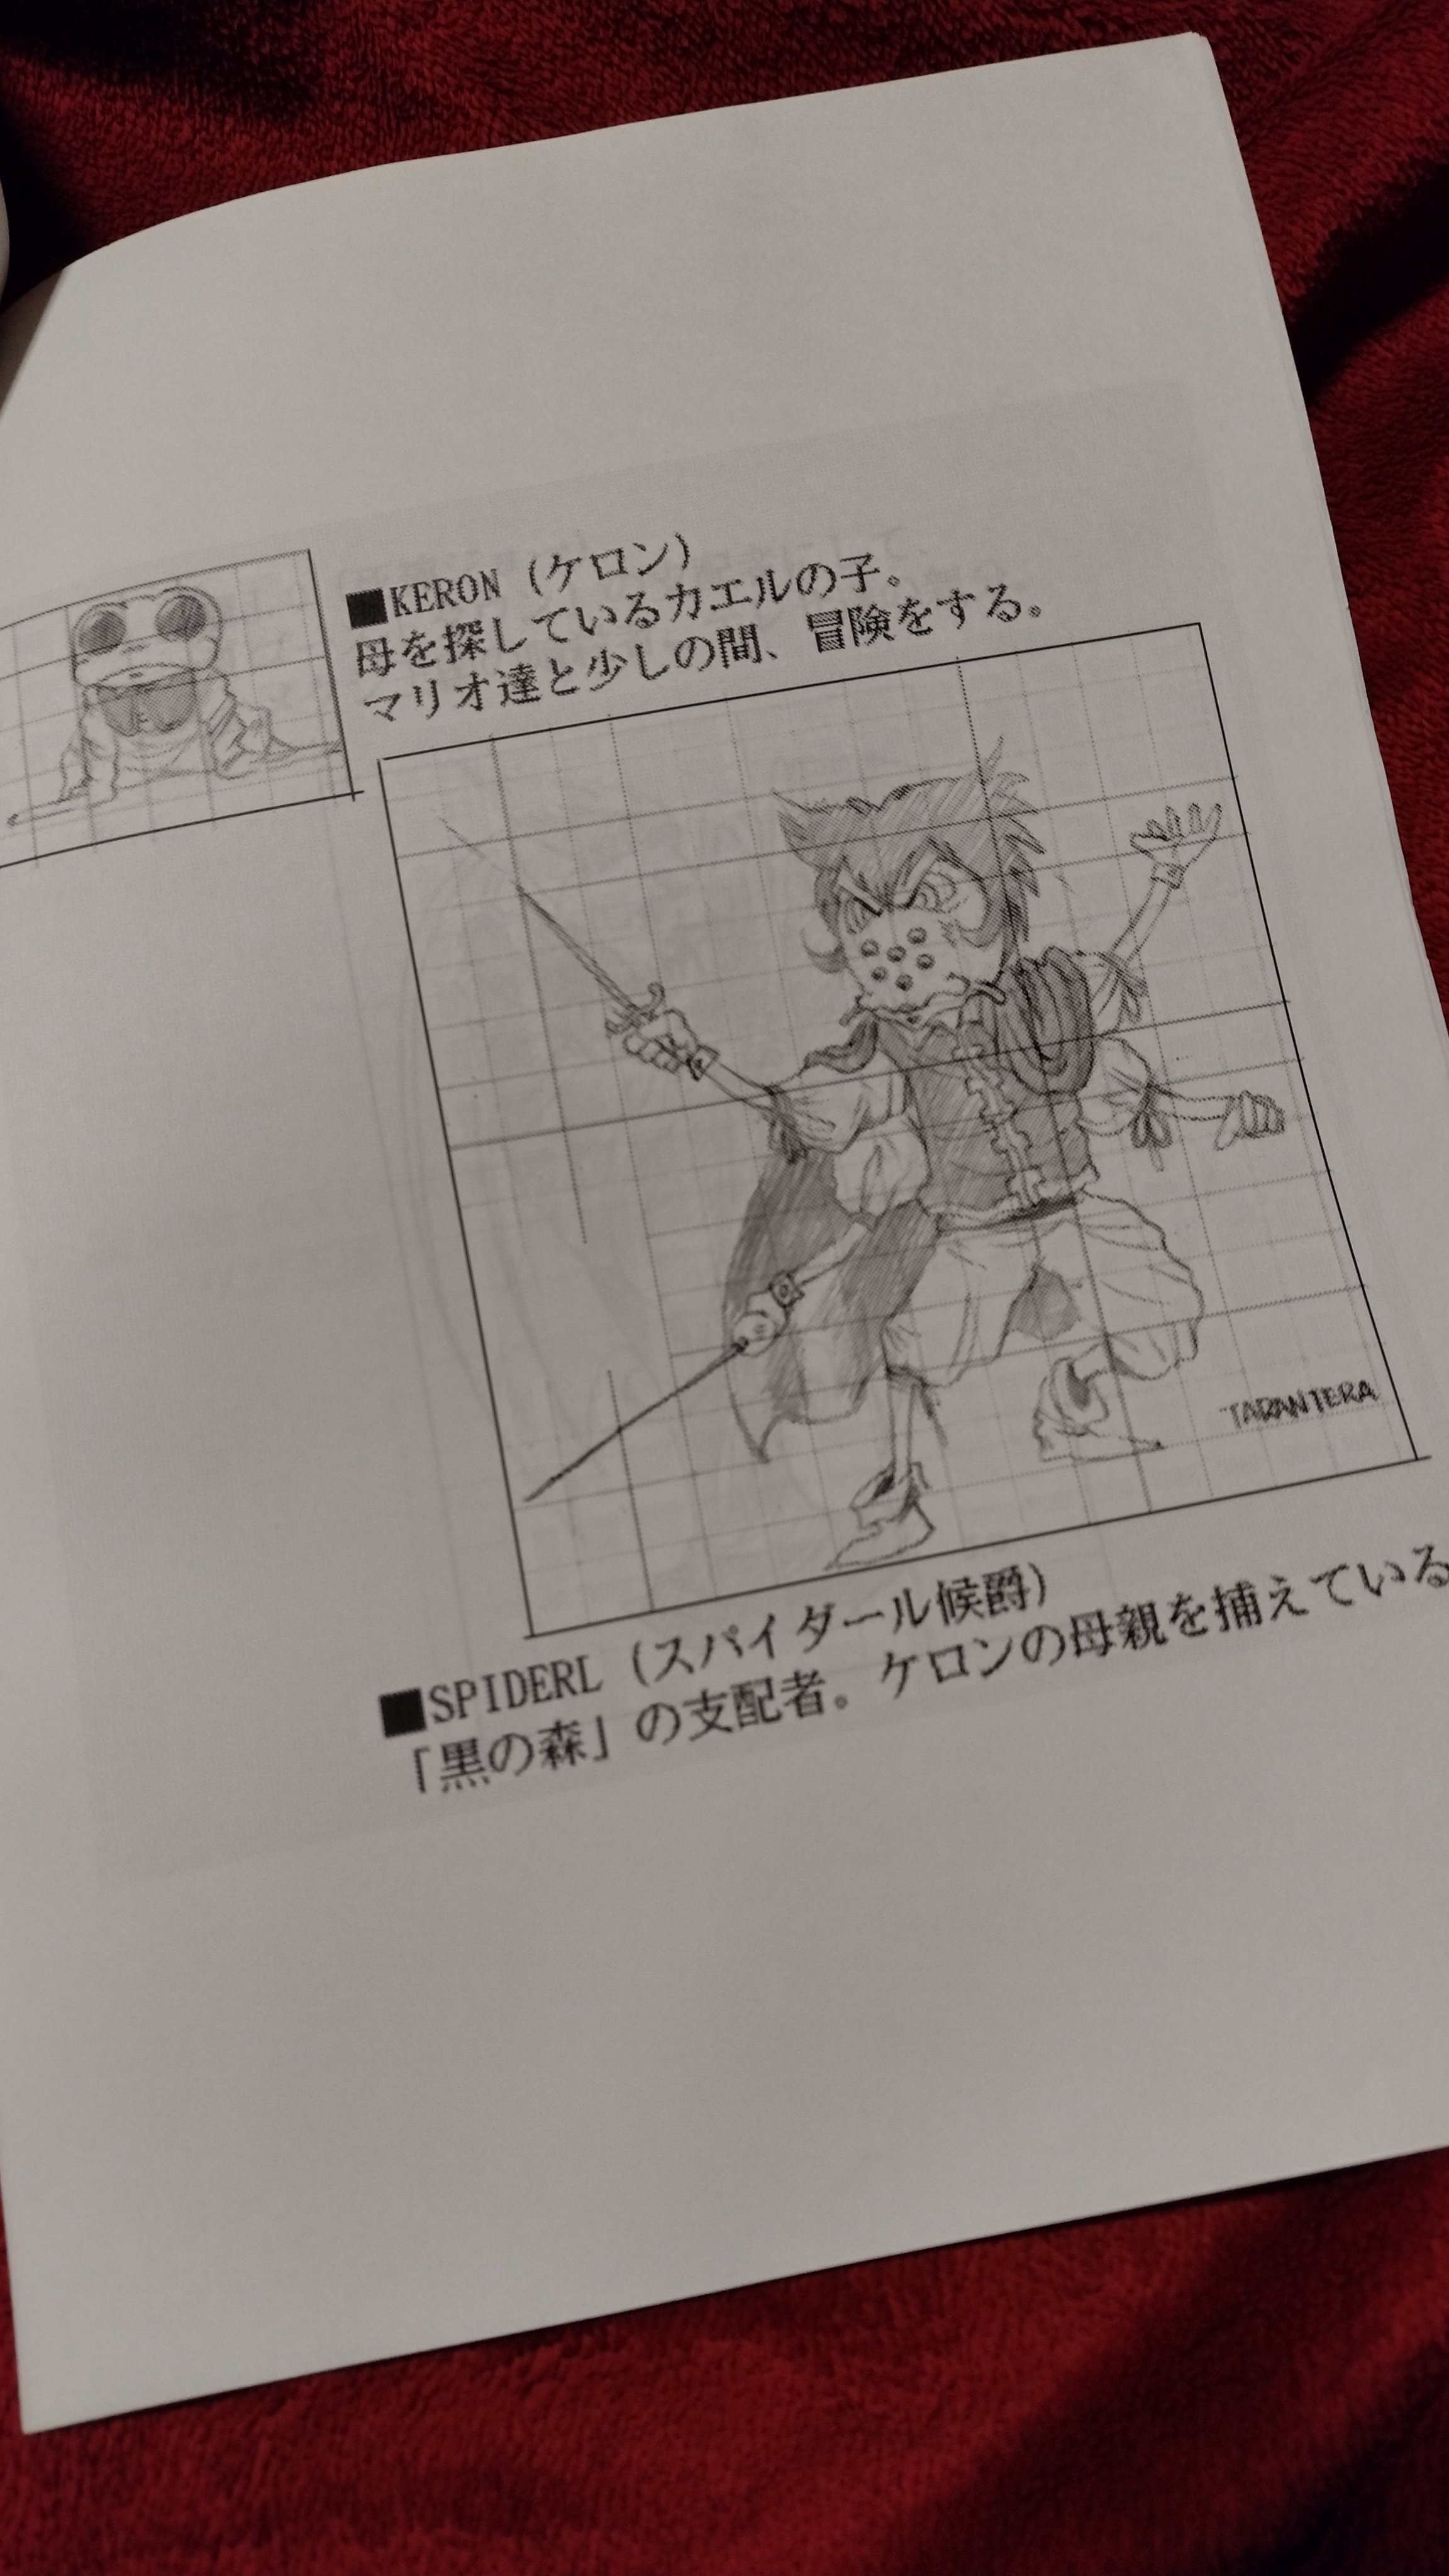 ■KERON (ケロン)
母を探しているカエルの子。
マリオ達と少しの間、冒険をする。
TARANTERA
■SPIDERL (スパイダール候爵)
「黒の森」の支配者。ケロンの母親を捕えている